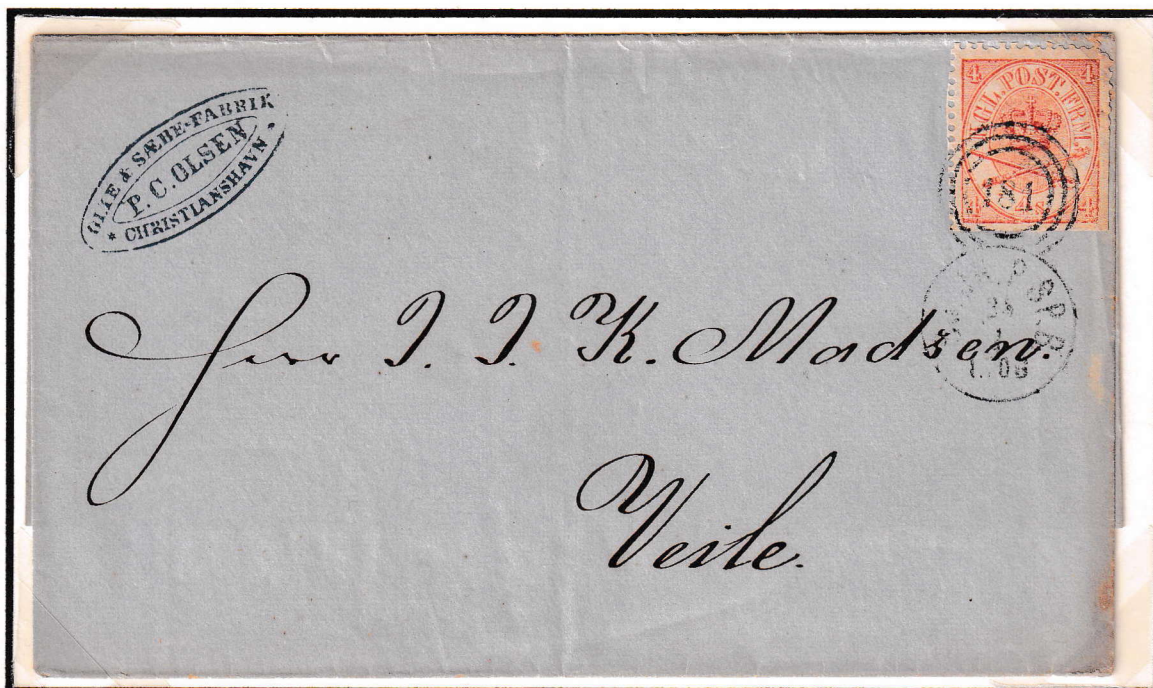 GLIE & SÆBE-FABRIK
P. C. OLSEN
* CHRISTIANSHAVN *
4 4
KGL. POST. FRM.
181
4 4
SP. B.
Herr J. J. K. Madsen.
Veile.